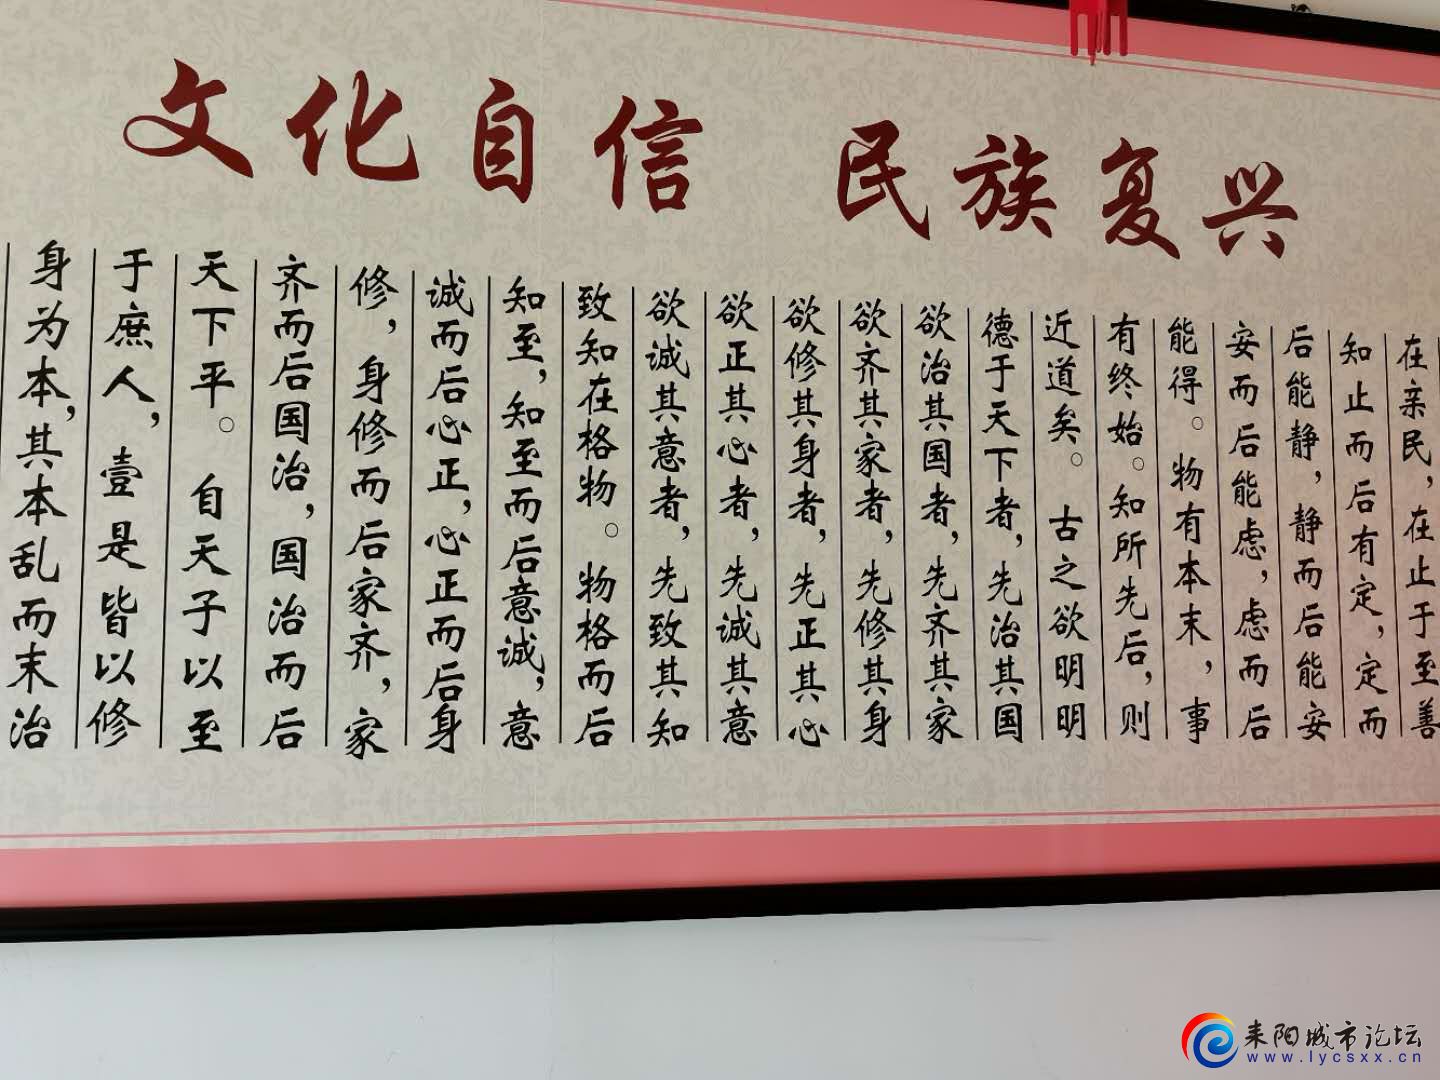 文化自信 民族复兴
在亲民，在止于至善
知止而后有定，定而
后能静，静而后能安
安而后能虑，虑而后
能得。物有本末，事
有终始。知所先后，则
近道矣。古之欲明明
德于天下者，先治其国
欲治其国者，先齐其家
欲齐其家者，先修其身
欲修其身者，先正其心
欲正其心者，先诚其意
欲诚其意者，先致其知
致知在格物。物格而后
知至，知至而后意诚，意
诚而后心正，心正而后身
修，身修而后家齐，家
齐而后国治，国治而后
天下平。自天子以至
于庶人，壹是皆以修
身为本，其本乱而末治
耒阳城市论坛
www.lycsxx.cn